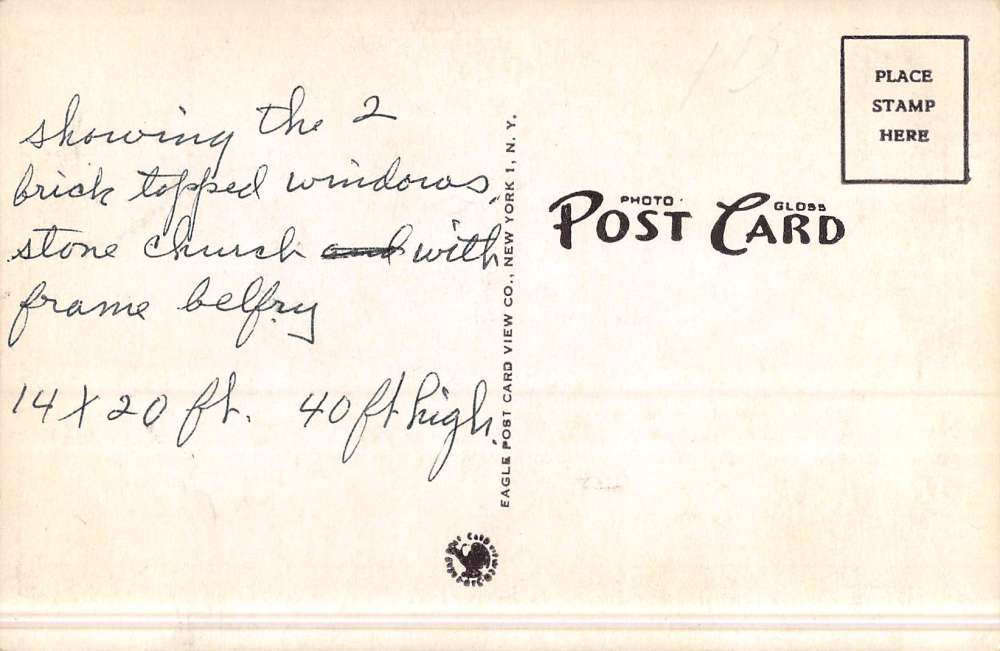 showing the 2
brick topped windows,
stone church and with
frame belfry
14 X 20 ft. 40 ft high.
EAGLE POST CARD VIEW CO., NEW YORK 1, N. Y.
PHOTO GLOSS
POST CARD
PLACE
STAMP
HERE